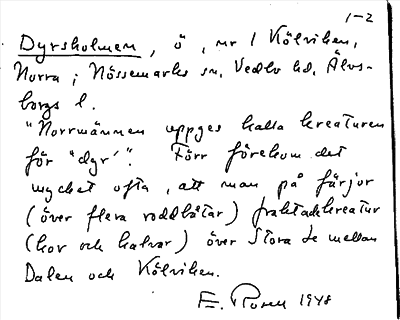 1-2
Dyrsholmen, ö, nr 1 Kölviken,
Norra i Nössemarks sn, Vedbo hd, Älvs-
borgs l.
"Norrmännen uppges kalla kreaturen
för "dyr". Förr förekom det
mycket ofta, att man på färjor
(över flera roddbåtar) fraktade kreatur
(kor och kalvar) över Stora Le mellan
Dalen och Kölviken.
E. Rosen 1948